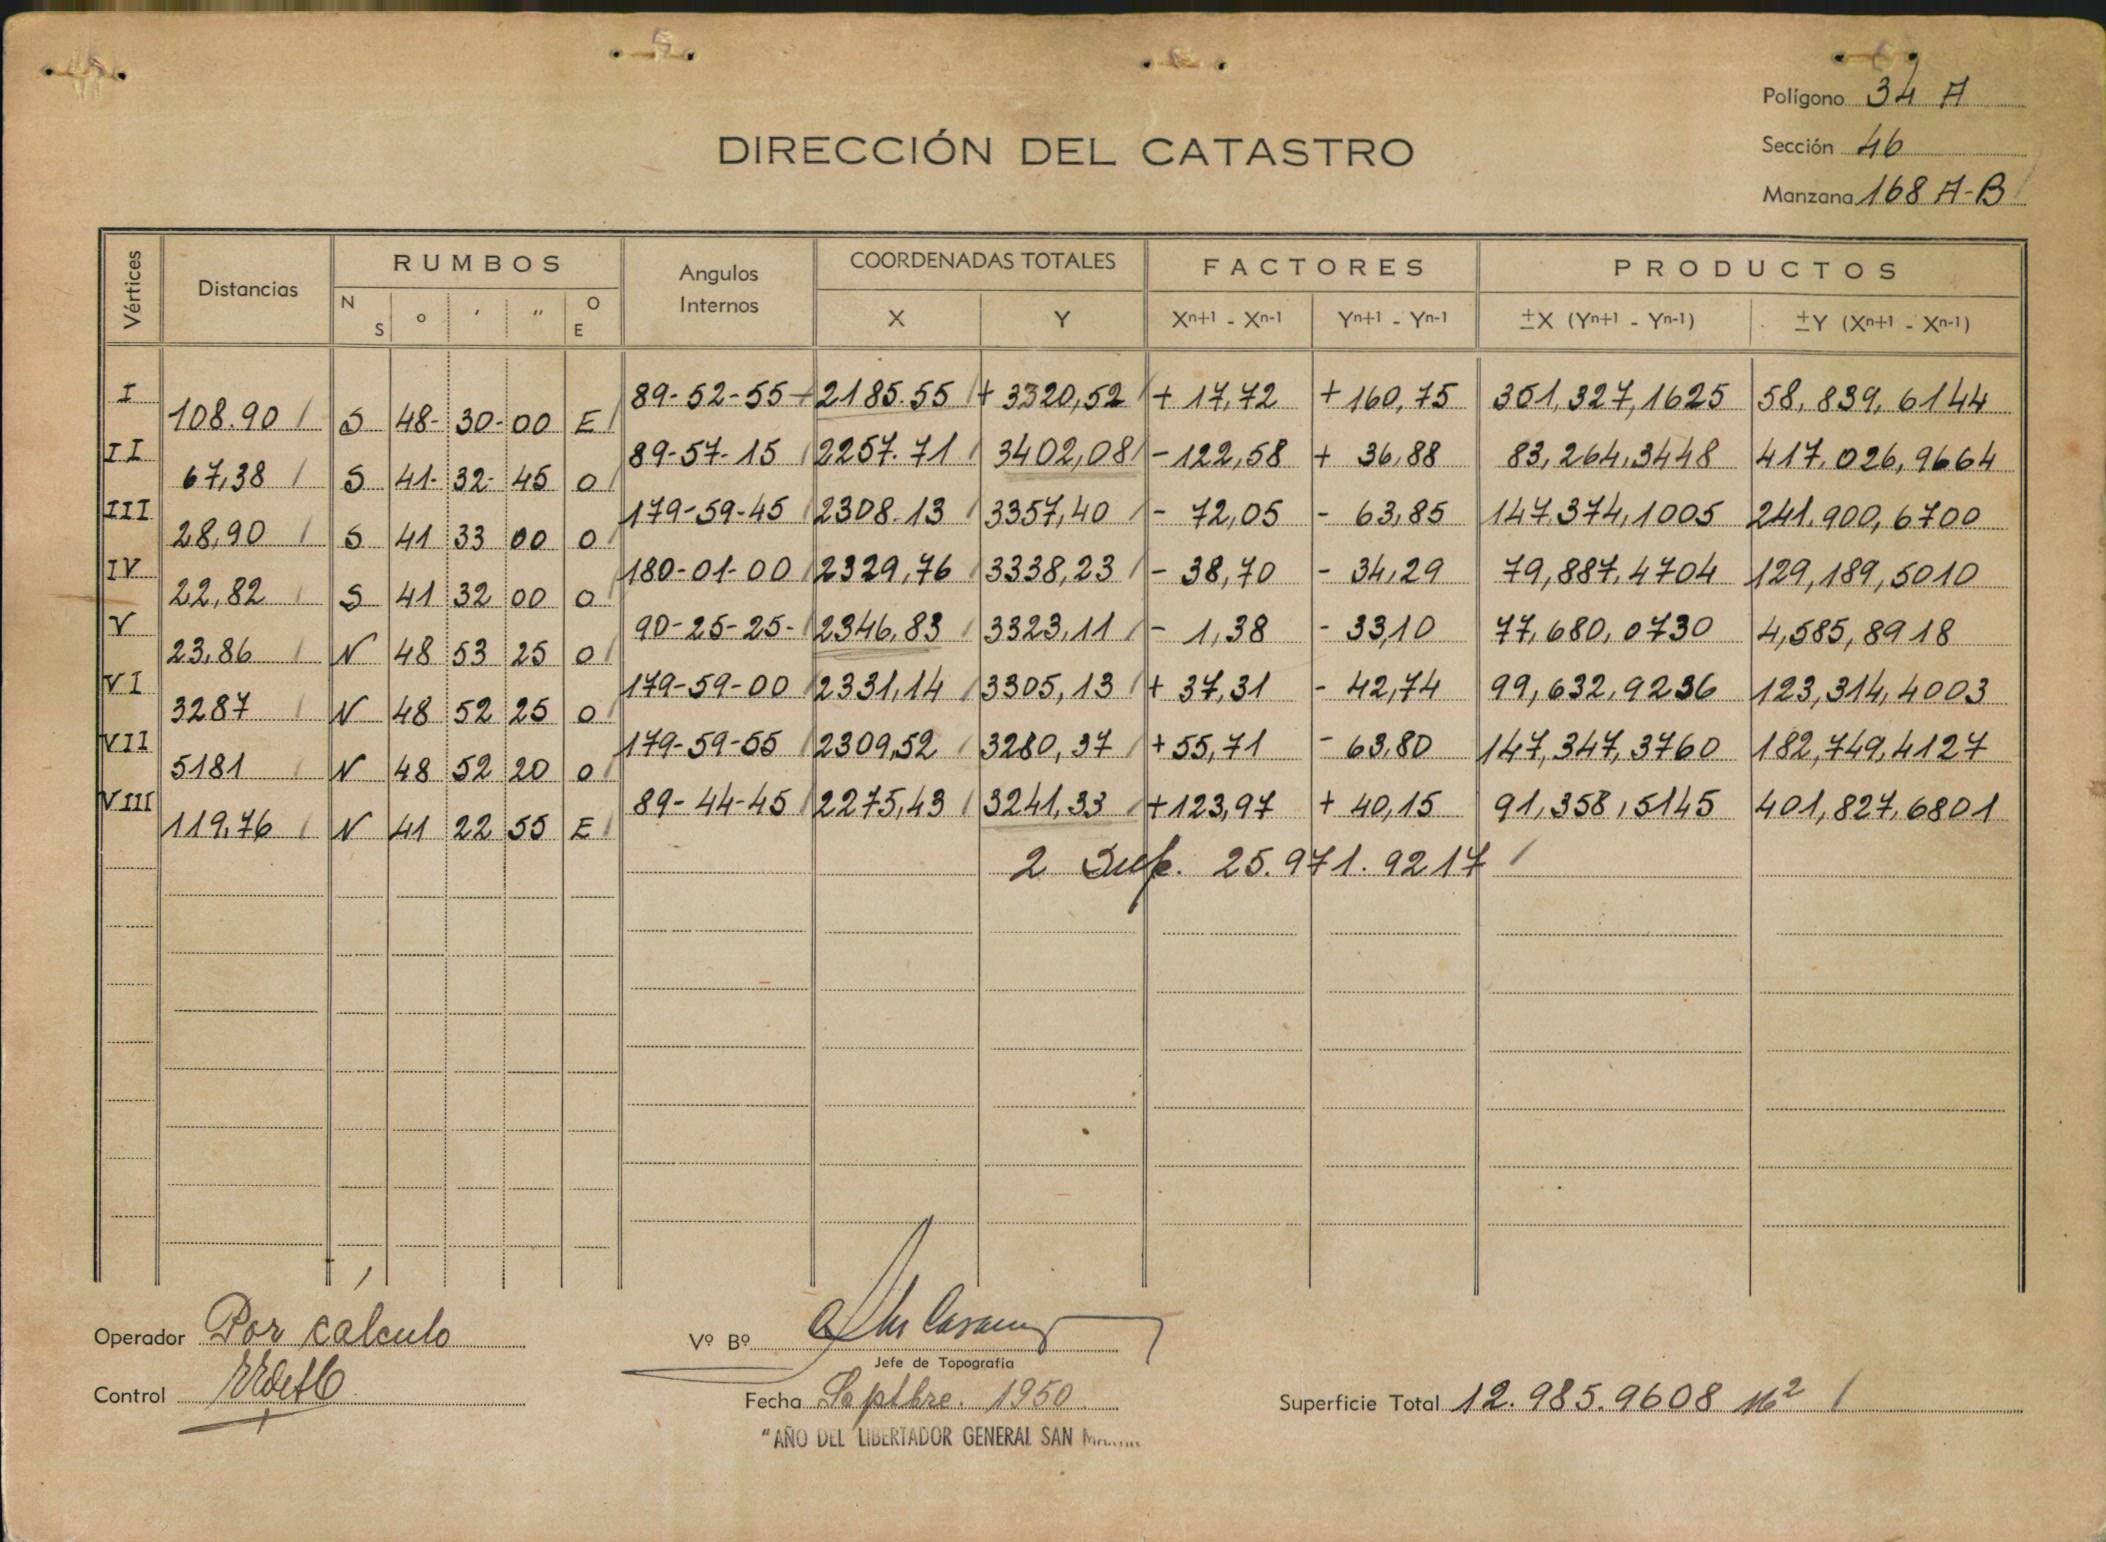 Polígono 34 A
Sección 46
Manzana 168 A-B
DIRECCIÓN DEL CATASTRO
Vértices Distancias RUMBOS Angulos Internos COORDENADAS TOTALES FACTORES PRODUCTOS
N S o ′ ″ O E X Y Xn+1 - Xn-1 Yn+1 - Yn-1 ±X (Yn+1 - Yn-1) ±Y (Xn+1 - Xn-1)
I 89-52-55 +2185.55 + 3320,52 + 17,72 + 160,75 351,327,1625 58,839,6144
108.90 S 48- 30- 00 E
II 89-57-15 2257.71 3402,08 - 122,58 + 36,88 83,264,3448 417.026,9664
67,38 S 41- 32- 45 O
III 179-59-45 2308.13 3357,40 - 72,05 - 63,85 147.374,1005 241.900,6700
28,90 S 41 33 00 O
IV 180-01-00 2329,76 3338,23 - 38,70 - 34,29 79,887,4704 129,189,5010
22,82 S 41 32 00 O
V 90-25-25- 2346,83 3323,11 - 1,38 - 33,10 77,680,0730 4,585,8918
23,86 N 48 53 25 O
VI 179-59-00 2331,14 3305,13 + 37,31 - 42,74 99,632,9236 123,314,4003
3287 N 48 52 25 O
VII 179-59-55 2309,52 3280,37 +55,71 - 63,80 147,347,3760 182,749,4127
5181 N 48 52 20 O
VIII 89-44-45 2275,43 3241,33 +123,97 + 40,15 91,358,5145 401,827,6801
119,76 N 41 22 55 E
2 Sup. 25.971.9217
Operador Por cálculo
Vº Bº
Jefe de Topografía
Control
Fecha Septbre. 1950
Superficie Total 12.985.9608 M²
"AÑO DEL LIBERTADOR GENERAL SAN